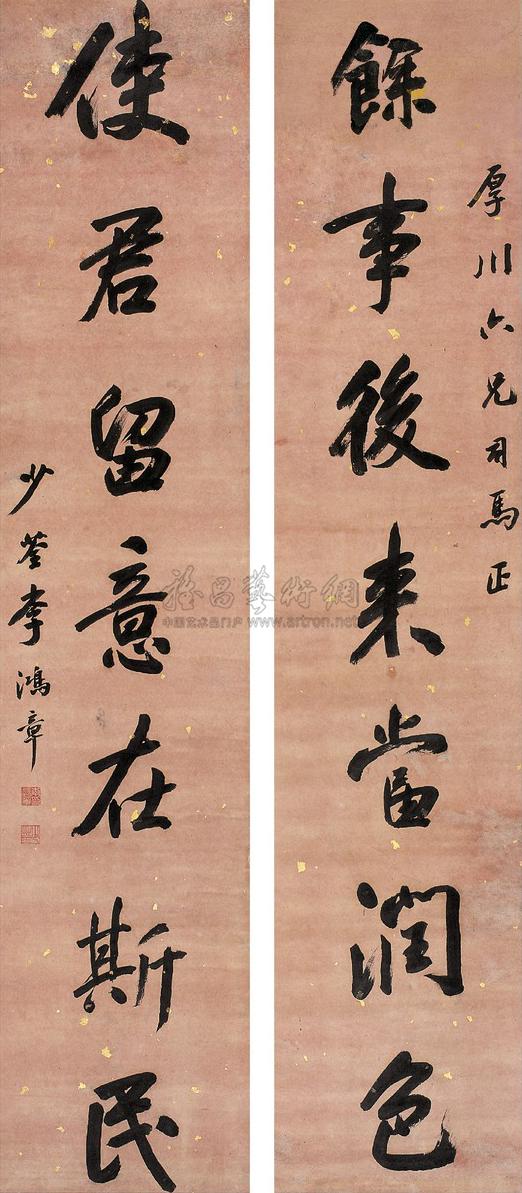 厚川六兄司馬正
餘事後来當潤色
使君留意在斯民
少荃李鴻章
雅昌藝術網
中国艺术品门户 www.artron.net